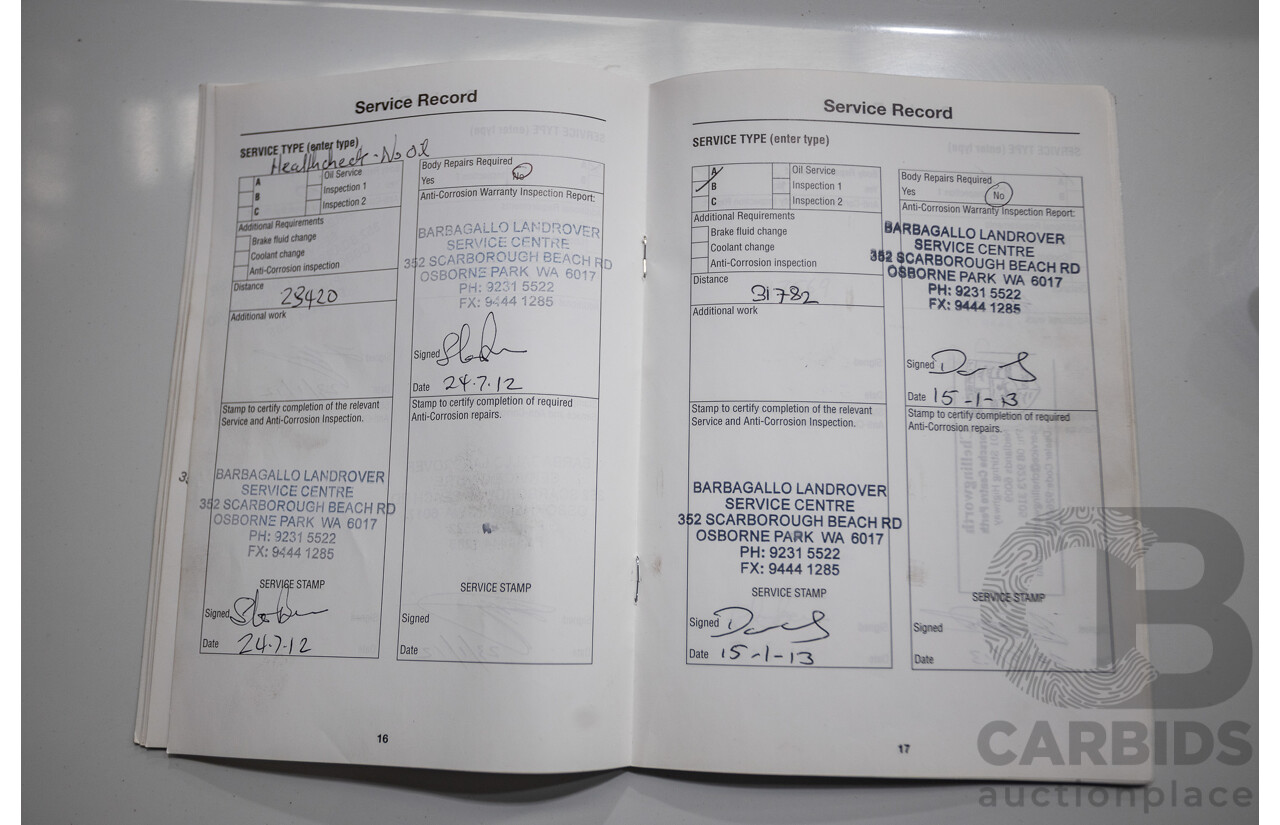 Service Record
SERVICE TYPE (enter type)
Healthcheck - No Oil
A
B
C
Oil Service
Inspection 1
Inspection 2
Additional Requirements
Brake fluid change
Coolant change
Anti-Corrosion inspection
Distance
23420
Additional work
Stamp to certify completion of the relevant
Service and Anti-Corrosion Inspection.
BARBAGALLO LANDROVER
SERVICE CENTRE
352 SCARBOROUGH BEACH RD
OSBORNE PARK WA 6017
PH: 9231 5522
FX: 9444 1285
SERVICE STAMP
Signed
Date 24.7.12
Body Repairs Required
Yes No
Anti-Corrosion Warranty Inspection Report:
BARBAGALLO LANDROVER
SERVICE CENTRE
352 SCARBOROUGH BEACH RD
OSBORNE PARK WA 6017
PH: 9231 5522
FX: 9444 1285
Signed
Date 24.7.12
Stamp to certify completion of required
Anti-Corrosion repairs.
SERVICE STAMP
Signed
Date
16
Service Record
SERVICE TYPE (enter type)
A
B
C
Oil Service
Inspection 1
Inspection 2
Additional Requirements
Brake fluid change
Coolant change
Anti-Corrosion inspection
Distance
31782
Additional work
Stamp to certify completion of the relevant
Service and Anti-Corrosion Inspection.
BARBAGALLO LANDROVER
SERVICE CENTRE
352 SCARBOROUGH BEACH RD
OSBORNE PARK WA 6017
PH: 9231 5522
FX: 9444 1285
SERVICE STAMP
Signed
Date 15-1-13
Body Repairs Required
Yes No
Anti-Corrosion Warranty Inspection Report:
BARBAGALLO LANDROVER
SERVICE CENTRE
352 SCARBOROUGH BEACH RD
OSBORNE PARK WA 6017
PH: 9231 5522
FX: 9444 1285
Signed
Date 15-1-13
Stamp to certify completion of required
Anti-Corrosion repairs.
SERVICE STAMP
Signed
Date
17
CB
CARBIDS
auctionplace